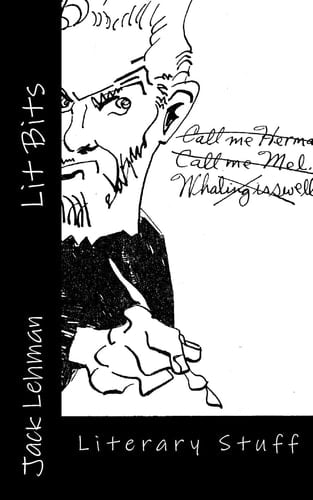 Lit Bits
Jack Lehman
Call me Herma
Call me Mel.
Whaling is swell
Literary Stuff